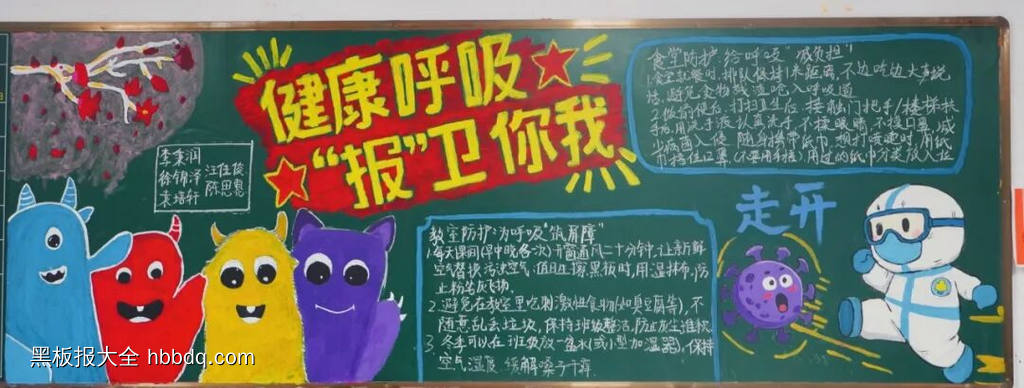 健康呼吸
“报”卫你我
李秉润
徐锦泽 汪佳俊
袁培轩 陈思惠
食堂防护 给呼吸“减负担”
1.食堂就餐时,排队保持1米距离,不边吃边大声说
话,避免食物残渣呛入呼吸道
2.做值日后、打扫卫生后、接触门把手/楼梯扶
手后,用洗手液认真洗手,不揉眼睛,不捂口鼻,减
少病菌入侵 随身携带纸巾,想打喷嚏时,用纸
巾捂住口鼻(不要用手捂),用过的纸巾
走开
教室防护:为呼吸“筑屏障”
1.每天课间(早中晚各一次)开窗通风二十分钟,让新鲜
空气替换污浊空气,值日生擦黑板时,用湿抹布,防
止粉尘飞扬.
2.避免在教室里吃刺激性食物(如臭豆腐等),不
随意乱丢垃圾,保持班级整洁,防止灰尘堆积
3.冬季可以在班级放一盆水(或小型加湿器),保持
空气湿度 缓解嗓子干痒
黑板报大全 hbbdq.com